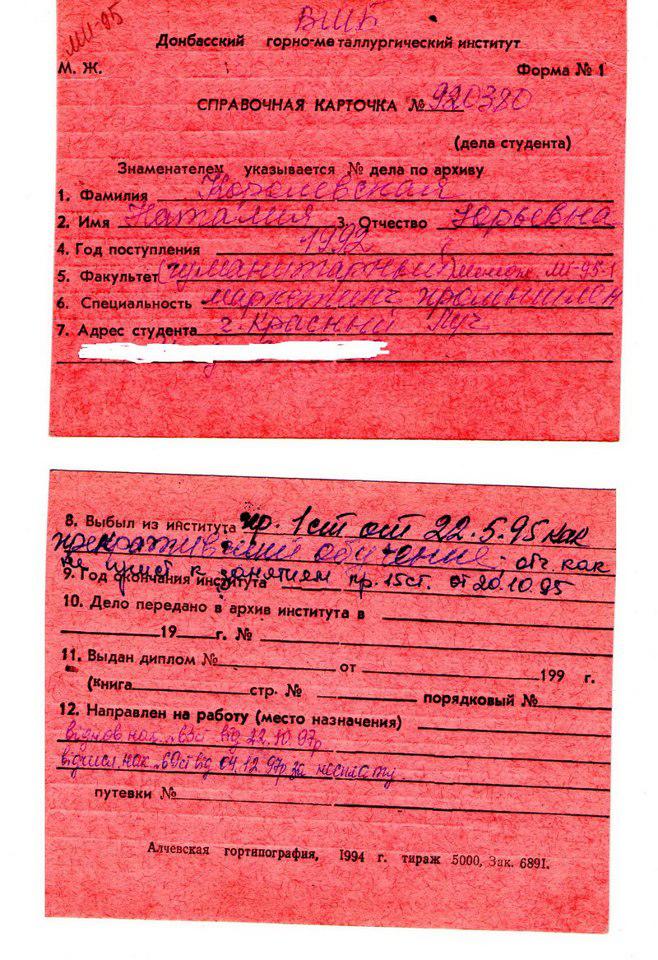 МП-95
ВШБ
Донбасский горно-металлургический институт
М. Ж.
Форма № 1
СПРАВОЧНАЯ КАРТОЧКА № 920380
(дела студента)
Знаменателем указывается № дела по архиву
1. Фамилия Королевская
2. Имя Наталия 3. Отчество Юрьевна
4. Год поступления 1992
5. Факультет (гуманитарный)
6. Специальность маркетинг промышлен
7. Адрес студента г. Красный Луч
8. Выбыл из института пр. 1ст от 22.5.95 как
прекратившая обучение; отч как
не прист к занятиям пр. 15ст. от 20.10.95
9. Год окончания института
10. Дело передано в архив института в
19 г. №
11. Выдан диплом № от 199 г.
(книга стр. № порядковый №
12. Направлен на работу (место назначения)
відміс. нак. від 04.12.97р за несплату
путевки №
Алчевская гортипография, 1994 г. тираж 5000, Зак. 6891.